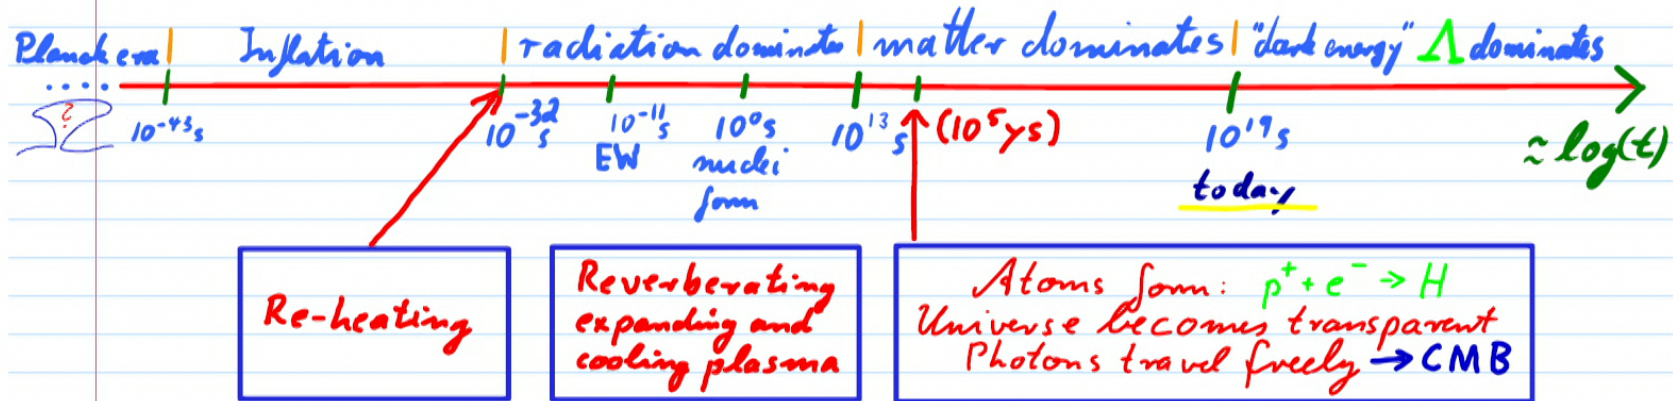 Planck era | Inflation | radiation dominates | matter dominates | "dark energy" Λ dominates
....
?
10⁻⁴³s 10⁻³²s 10⁻¹¹s 10⁰s 10¹³s (10⁵ys) 10¹⁹s ≈ log(t)
EW nuclei today
form
Re-heating
Reverberating
expanding and
cooling plasma
Atoms form: p⁺ + e⁻ → H
Universe becomes transparent
Photons travel freely → CMB